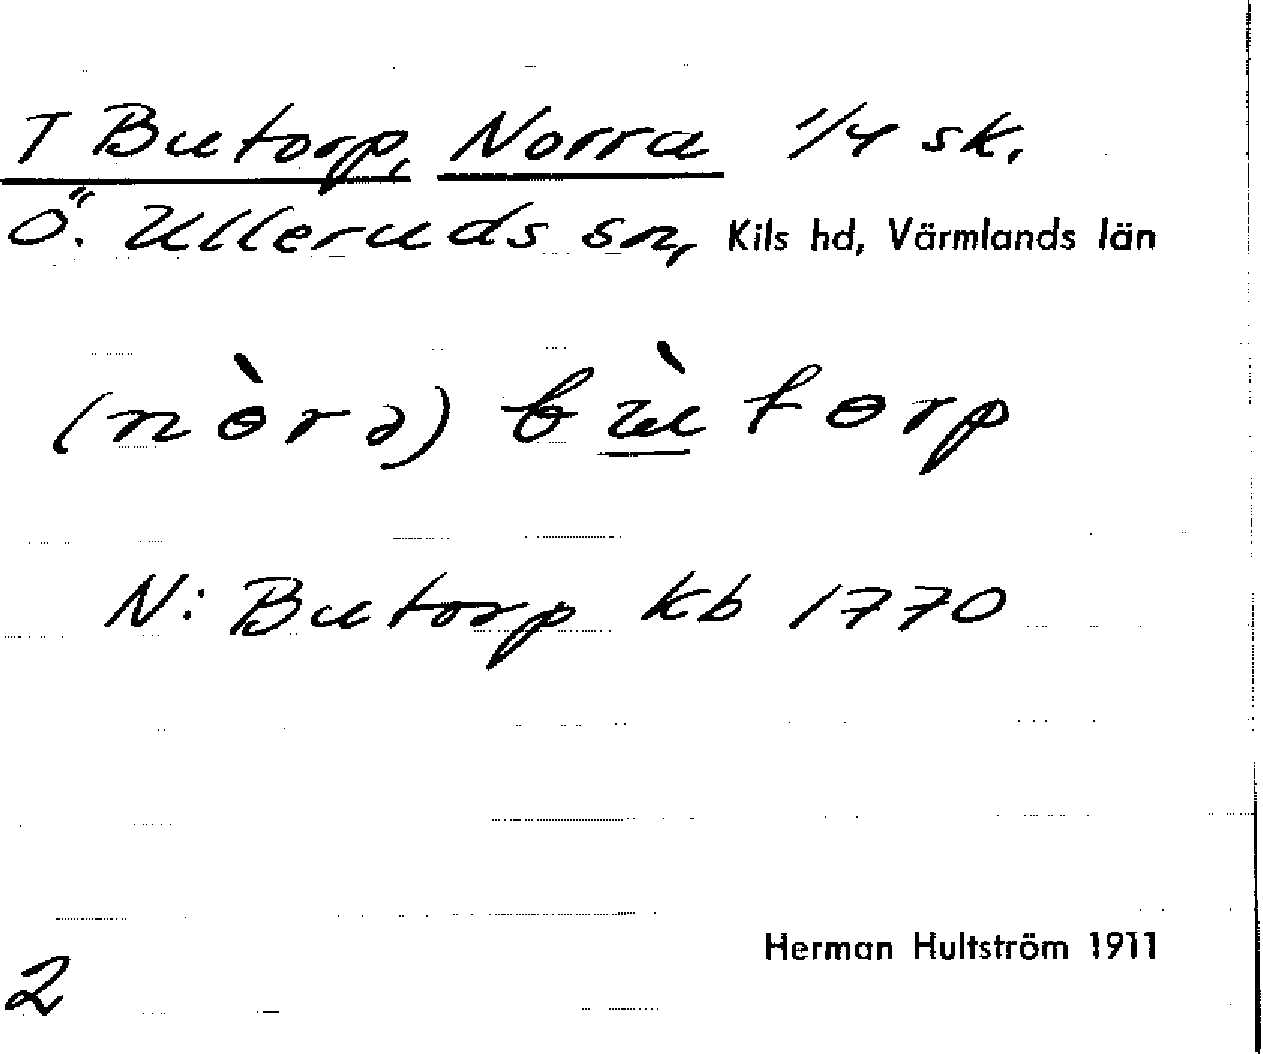 T Butorp, Norra 1/4 sk.
Ö. Ulleruds sn, Kils hd, Värmlands län
(nɵ̀rə) bù̲torp
N: Butorp kb 1770
Herman Hultström 1911
2